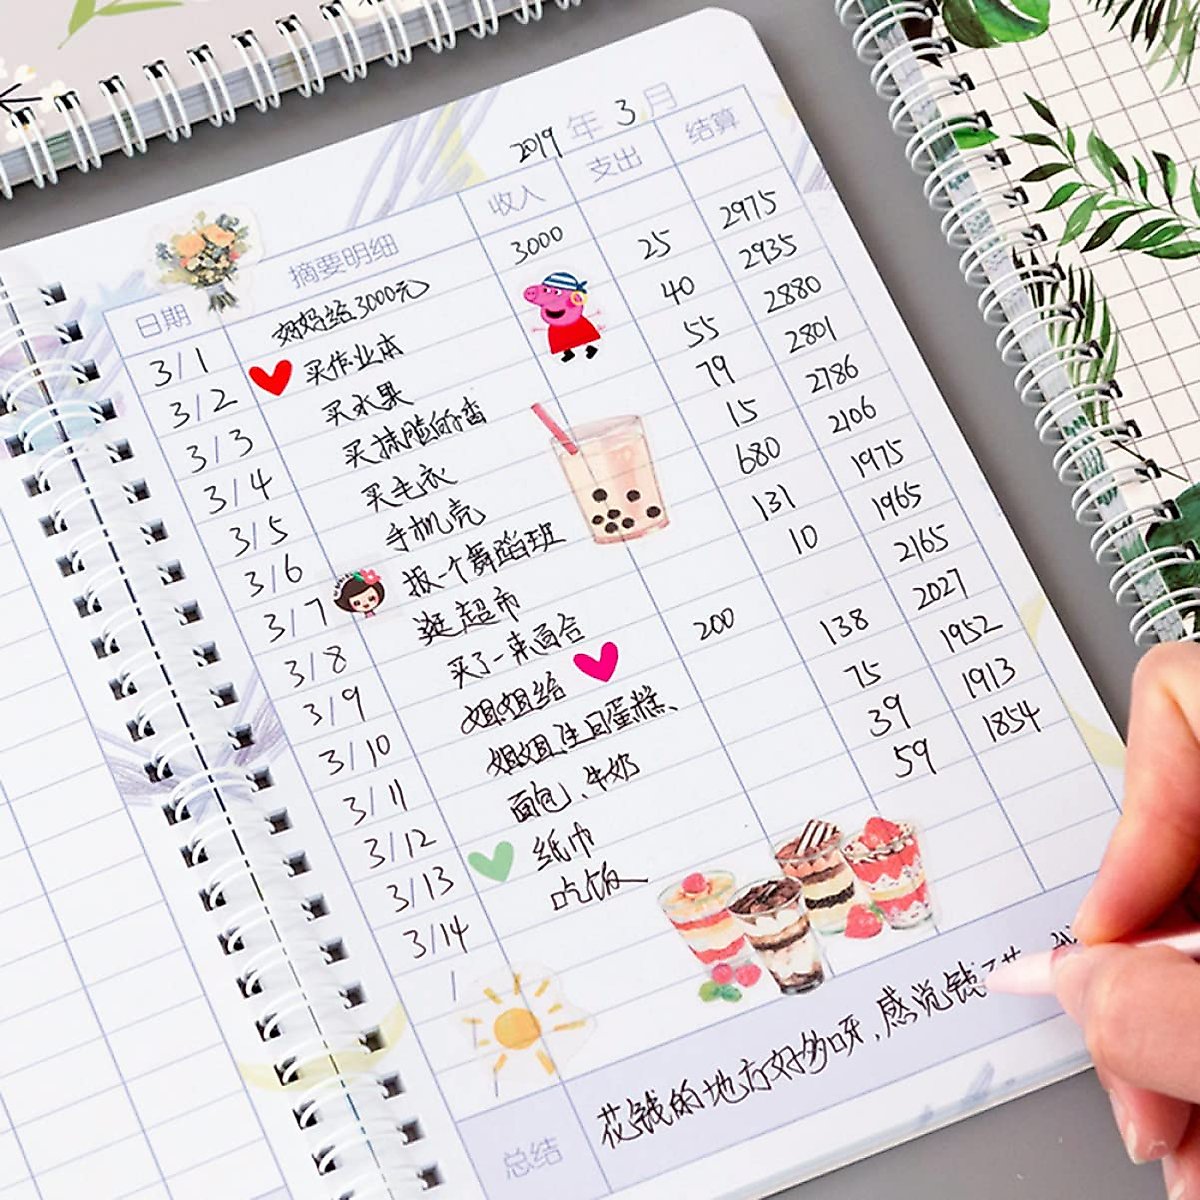 2019 年 3 月
日期 摘要明细 收入 支出 结算
3/1 妈妈给3000元 3000
3/2 买作业本 25 2975
3/3 买水果 40 2935
3/4 买抹脸的香 55 2880
3/5 买毛衣 79 2801
3/6 手机壳 15 2786
3/7 报一个舞蹈班 680 2106
3/8 逛超市 131 1975
3/9 买了一束百合 10 1965
3/10 姐姐给 200 2165
3/11 姐姐生日蛋糕、 138 2027
3/12 面包、牛奶 75 1952
3/13 纸巾 39 1913
3/14 吃饭 59 1854
/
总结 花钱的地方好多呀，感觉钱